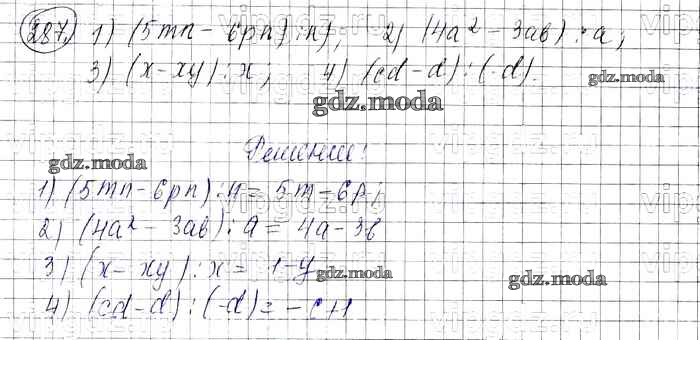 287. 1) (5mn - 6pn) : n); 2) (4a² - 3ab) : a;
3) (x - xy) : x; 4) (cd - d) : (-d).
gdz.moda
gdz.moda
Решение:
gdz.moda
1) (5mn - 6pn) : n = 5m - 6p;
2) (4a² - 3ab) : a = 4a - 3b
3) (x - xy) : x = 1 - y
gdz.moda
gdz.moda
4) (cd - d) : (-d) = - c + 1